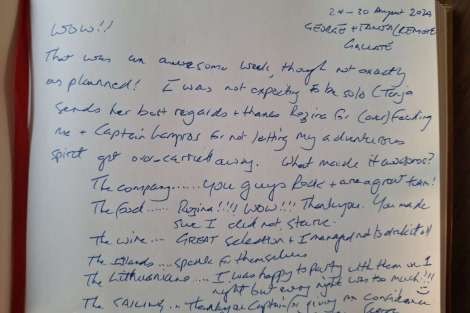 24-30 August 2024
WOW!!
GEORGE + TANJA (REMOTE
That was an awesome week, though not exactly
as planned! I was not expecting to be solo (Tanja
sends her best regards + thanks Regina for (over) feeding
me + Captain Lampros for not letting my adventurous
spirit get over-carried away. What made it awesome?
The company...... you guys Rock + are a great team!
The food..... Regina!!!! WOW!!! Thank you. You made
sure I did not starve.
The wine.... GREAT selection + I managed not to drink it all
The Islands.... speak for themselves
The Lithuanians.... I was happy to party with them on 1
night but every night was too much!!!
The SAILING... Thank you Captain for giving me confidence